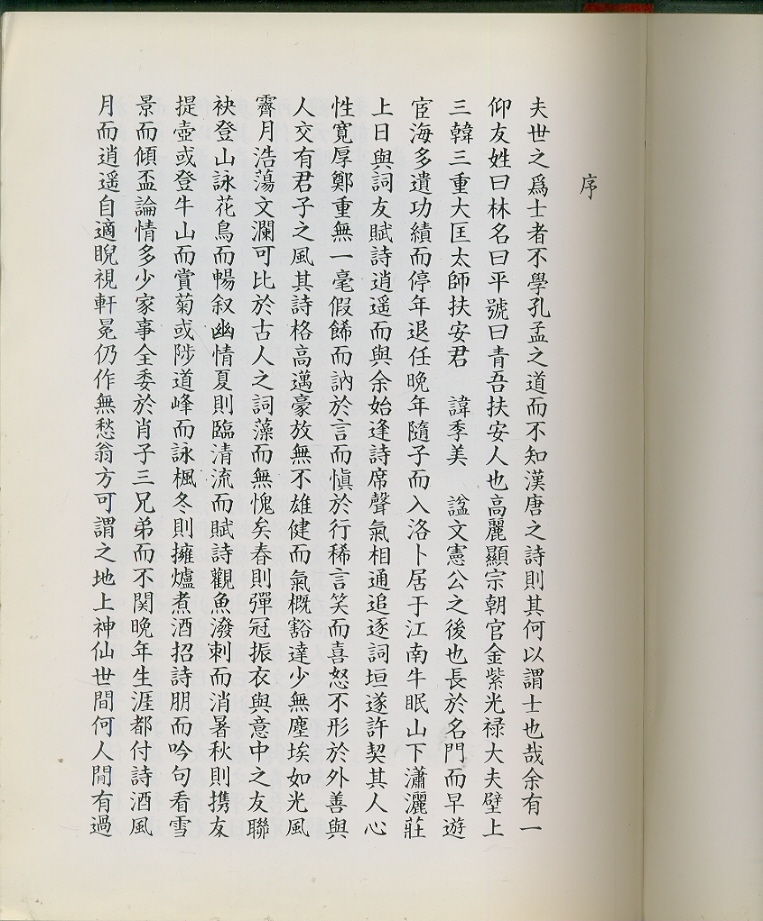 序
夫世之爲士者不學孔孟之道而不知漢唐之詩則其何以謂士也哉余有一
仰友姓曰林名曰平號曰青吾扶安人也高麗顯宗朝官金紫光禄大夫壁上
三韓三重大匡太師扶安君 諱季美 諡文憲公之後也長於名門而早遊
宦海多遺功績而停年退任晩年隨子而入洛卜居于江南牛眠山下瀟灑莊
上日與詞友賦詩逍遥而與余始逢詩席聲氣相通追逐詞垣遂許契其人心
性寛厚鄭重無一毫假餙而訥於言而愼於行稀言笑而喜怒不形於外善與
人交有君子之風其詩格高邁豪放無不雄健而氣概豁達少無塵埃如光風
霽月浩蕩文瀾可比於古人之詞藻而無愧矣春則彈冠振衣與意中之友聯
袂登山詠花鳥而暢叙幽情夏則臨清流而賦詩觀魚潑刺而消暑秋則携友
提壺或登牛山而賞菊或陟道峰而詠楓冬則擁爐煮酒招詩朋而吟句看雪
景而傾盃論情多少家事全委於肖子三兄弟而不関晩年生涯都付詩酒風
月而逍遥自適睨視軒冕仍作無愁翁方可謂之地上神仙世間何人閒有過